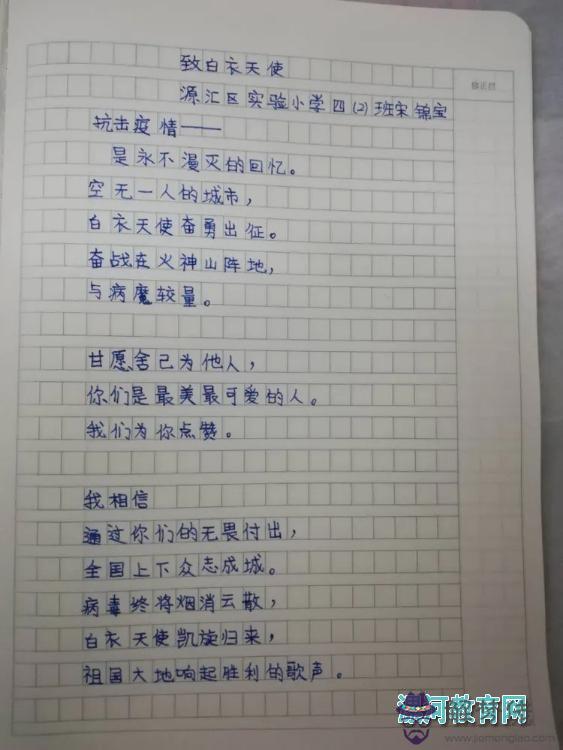 致白衣天使
源汇区实验小学四(2)班宋锦宝
抗击疫情——
是永不漫灭的回忆。
空无一人的城市,
白衣天使奋勇出征。
奋战在火神山阵地,
与病魔较量。
甘愿舍己为他人,
你们是最美最可爱的人。
我们为你点赞。
我相信
通过你们的无畏付出,
全国上下众志成城。
病毒终将烟消云散,
白衣天使凯旋归来,
祖国大地响起胜利的歌声。
www.jiemonglao.com